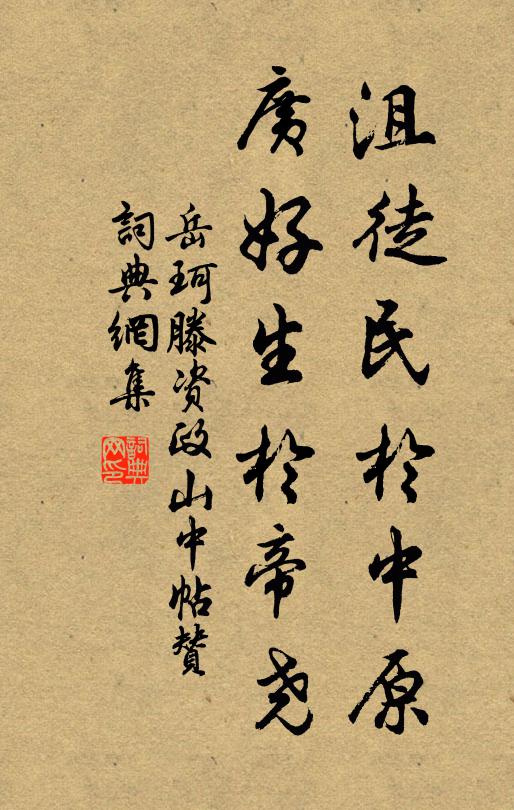 沮徒民於中原
廣好生於帝堯
岳珂滕资政山中帖贊
詞典網集
詞典網印